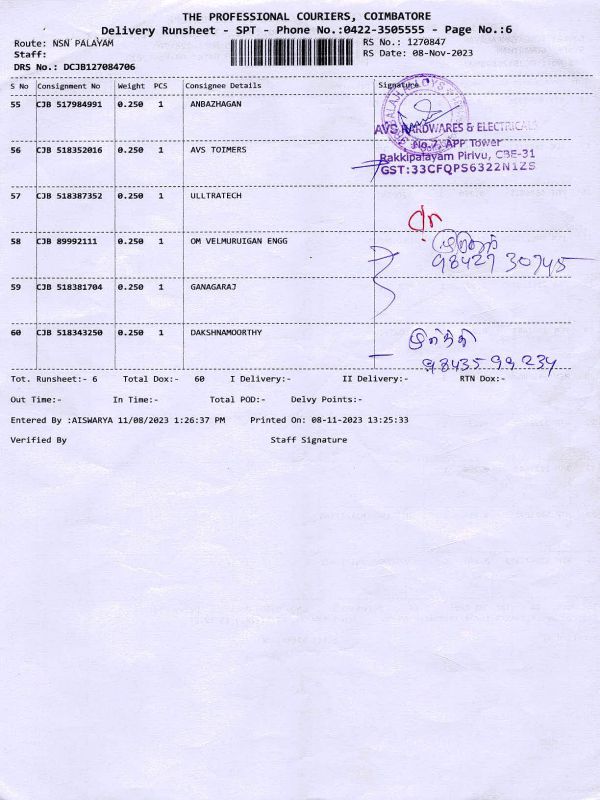 THE PROFESSIONAL COURIERS, COIMBATORE
Delivery Runsheet - SPT - Phone No.:0422-3505555 - Page No.:6
Route: NSN PALAYAM RS No.: 1270847
Staff: RS Date: 08-Nov-2023
DRS No.: DCJB127084706
S No Consignment No Weight PCS Consignee Details Signature
55 CJB 517984991 0.250 1 ANBAZHAGAN
AVS HARDWARES & ELECTRICALS
No.7, APP Tower
56 CJB 518352016 0.250 1 AVS TOIMERS
Rakkipalayam Pirivu, CBE-31
GST:33CFQPS6322N1ZS
57 CJB 518387352 0.250 1 ULLTRATECH
58 CJB 89992111 0.250 1 OM VELMURUIGAN ENGG
98427 30745
59 CJB 518381704 0.250 1 GANAGARAJ
60 CJB 518343250 0.250 1 DAKSHNAMOORTHY
98435 99234
Tot. Runsheet:- 6 Total Dox:- 60 I Delivery:- II Delivery:- RTN Dox:-
Out Time:- In Time:- Total POD:- Delvy Points:-
Entered By :AISWARYA 11/08/2023 1:26:37 PM Printed On: 08-11-2023 13:25:33
Verified By Staff Signature